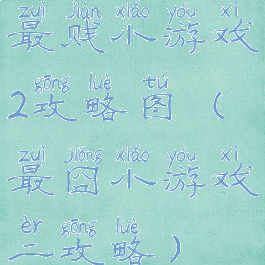 zuì jiàn xiǎo yóu xì
最贱小游戏
gōng luè tú
2攻略图（
zuì jiǒng xiǎo yóu xì
最囧小游戏
èr gōng luè
二攻略）